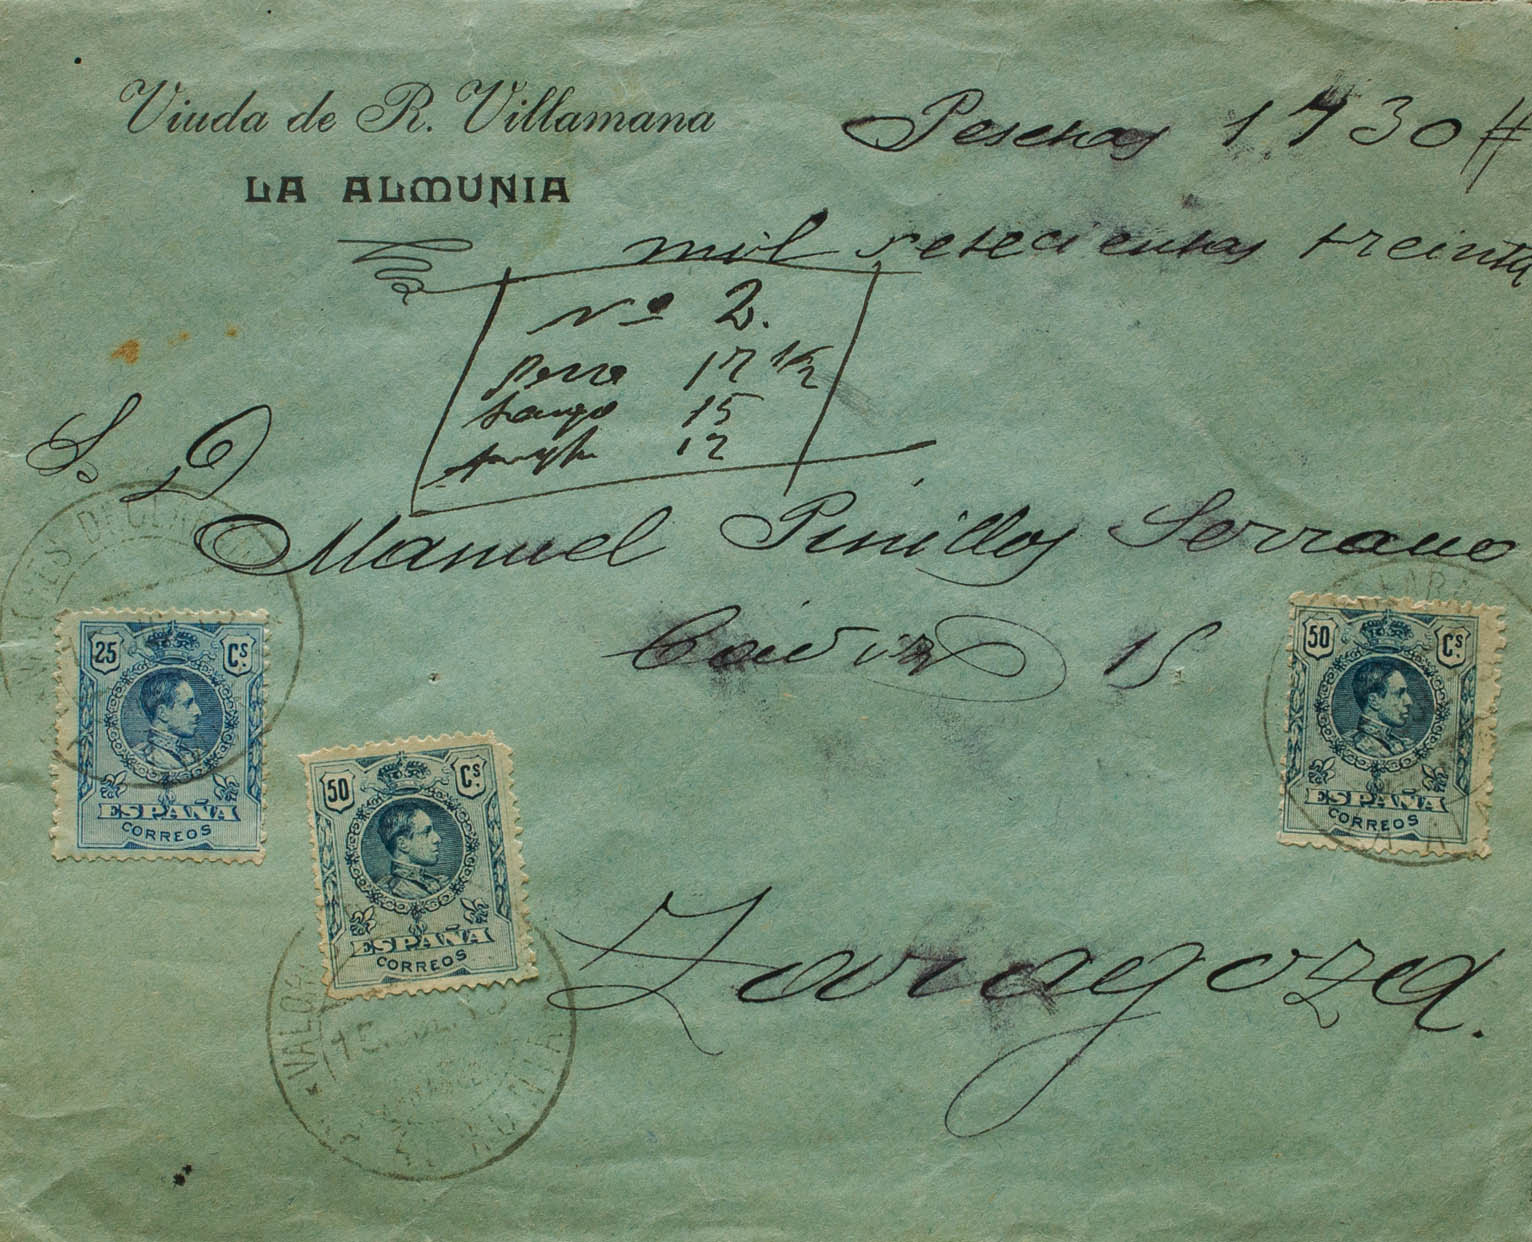 Viuda de R. Villamana
LA ALMUNIA
Pesetas 1730#
mil setecientas treinta
Nº 2.
peso 17 1/2
largo 15
12
S. D
Manuel Pinillos Serrano
15
Zaragoza.
25 Cs.
ESPAÑA
CORREOS
50 Cs.
ESPAÑA
CORREOS
50 Cs.
ESPAÑA
CORREOS
VALORES DECLARADOS